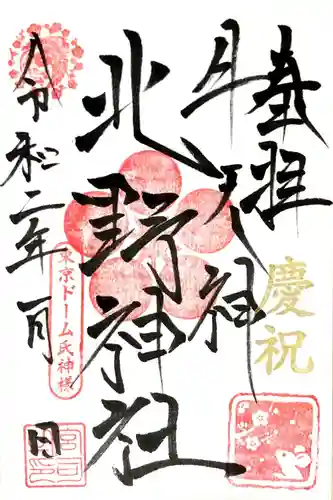 奉拝
慶祝
牛天神
北野神社
東京ドーム氏神様
令和二年一月
日